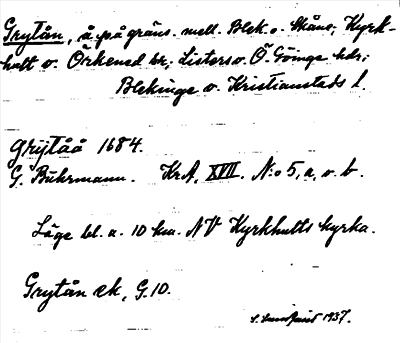 Grytån, å på gräns. mell. Blek. o. Skåne; Kyrk-
hult o. Örkened sn; Listers o. Ö. Göinge hdr;
Blekinge o. Kristianstads l.
grytåå 1684.
G. Buhrmann. KrA, XVII. N:o 5, a, o. b.
Läge bl. a. 10 km. NV Kyrkhults kyrka.
Grytån ek, G.10.
1937.